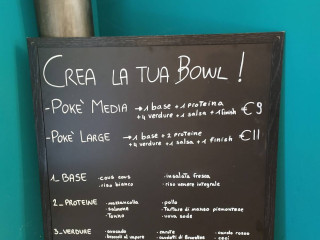 CREA LA TUA BOWL!
-POKE' MEDIA → 1 base + 1 proteina
+ 4 verdure + 1 salsa + 1 finish €9
-POKE' LARGE → 1 base + 2 proteine
+ 4 verdure + 1 salsa + 1 finish €11
1_BASE -cous cous -insalata fresca
-riso bianco -riso venere integrale
2_PROTEINE -mazzancolla -pollo
-salmone -Tartare di manzo piemontese
-Tonno -uova sode
3_VERDURE -avocado -carote -cavolo rosso
-broccoli al vapore -ceci